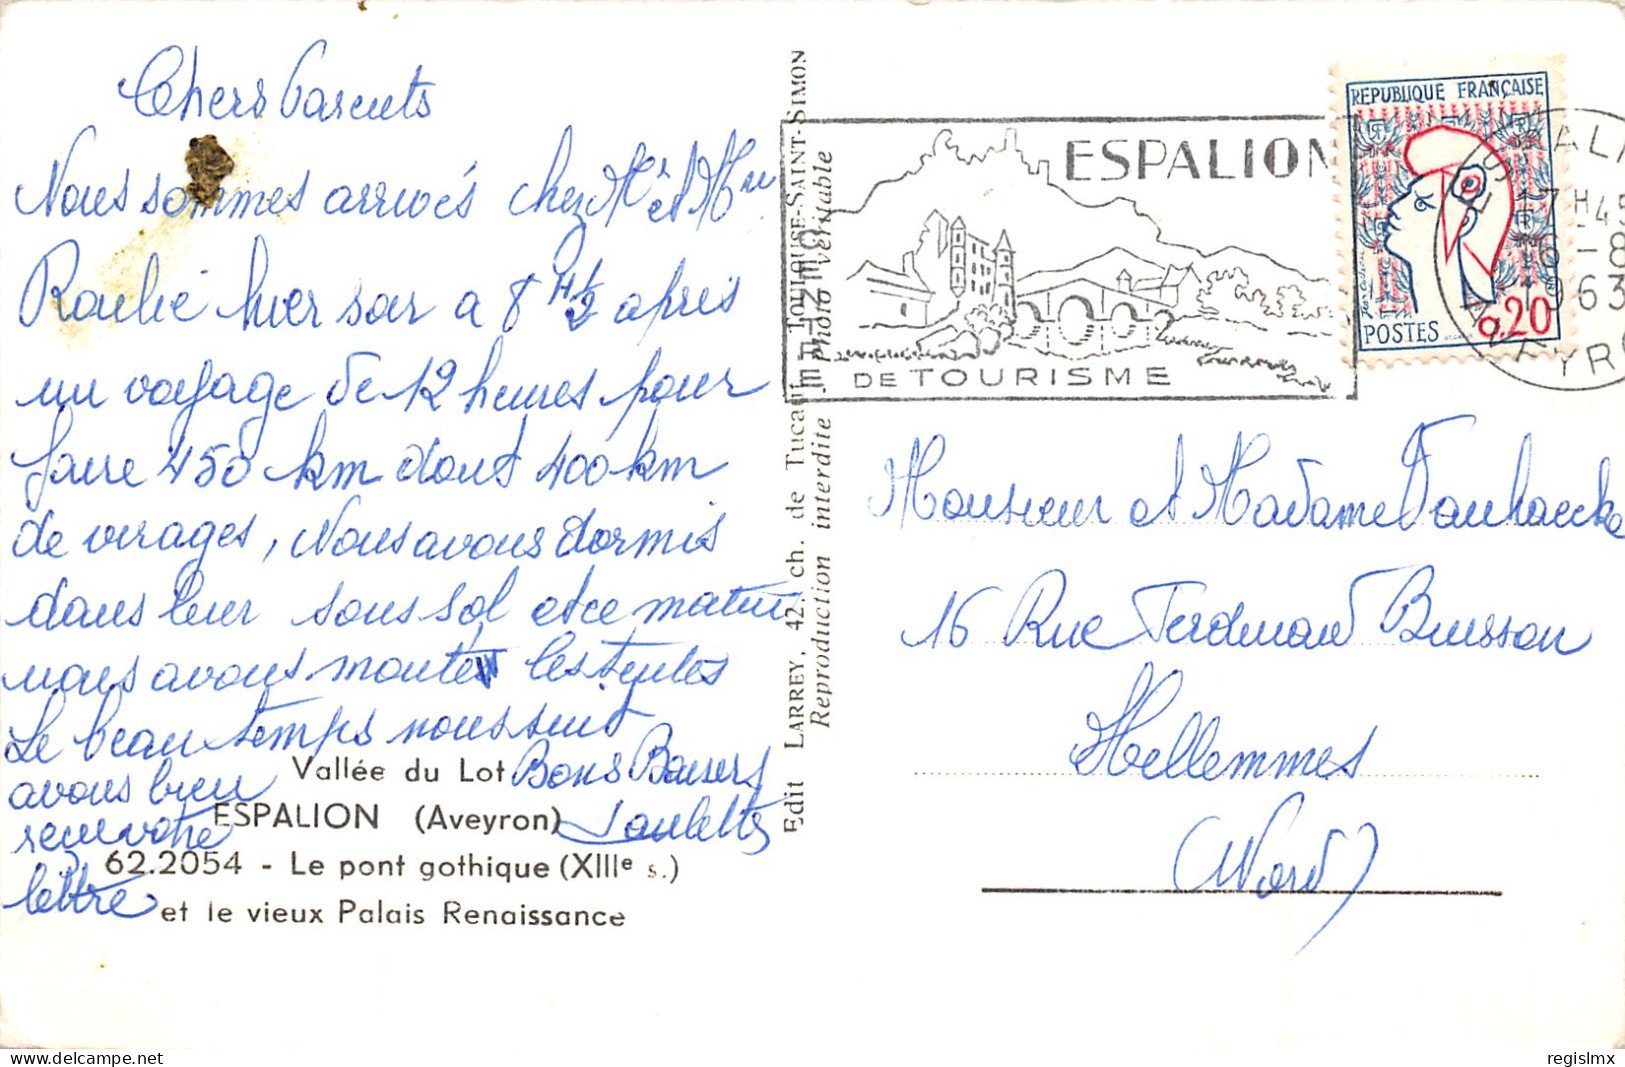 Chers Parents
Nous sommes arrivés chez Mr et Mme
hier soir a 8 H 1/2 après
un voyage de 12 heures pour
faire 450 km dont 400 km
de virages, Nous avons dormis
dans leur sous sol et ce matin
nous avons monté les tentes
Le beau temps nous suit
avons bien
reçu votre
lettre
Bons Baisers
Vallée du Lot
ESPALION (Aveyron)
62.2054 - Le pont gothique (XIIIe s.)
et le vieux Palais Renaissance
Edit LARREY, 42, ch. de TOULOUSE-SAINT-SIMON
Reproduction interdite Photo véritable
ESPALION
DE TOURISME
REPUBLIQUE FRANÇAISE
POSTES
0,20
1963
Monsieur et Madame Vanhaecke
16 Rue Ferdinand Buisson
Hellemmes
(Nord)
regislmx